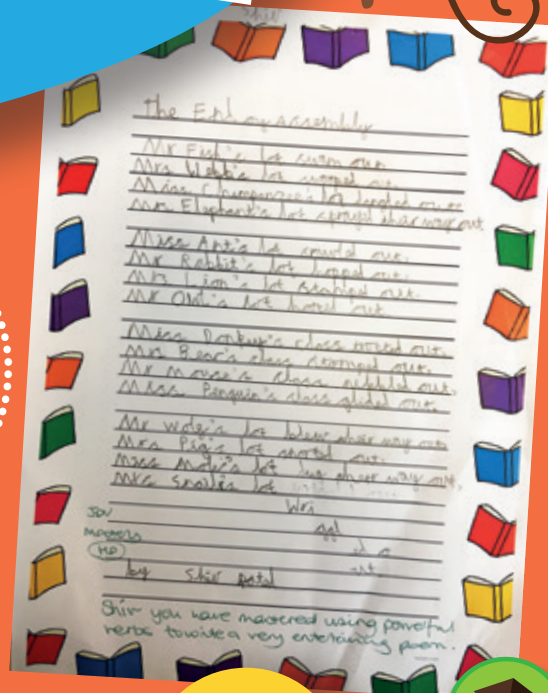 Shiv
The End of assembly
Mr Fish's lot swam out.
Mrs Webb's lot
Miss Chimpanzee's lot
Mrs Elephant's lot sprayd thair way out
Miss Ant's lot crawld out.
Mr Rabbit's lot hopped out.
Mr Lion's lot out.
Mr Owl's lot hooted out
Miss Donkey's class out.
Mrs Bear's class stomped out.
Mr Mouse's class nibbld out.
Miss Penguin's class glided out.
Mr Wolf's lot blew thair way out
Mrs Pig's lot snortd out.
Miss Mole's lot dug thair way out.
Mrs Snail's lot
Wri
ggl
d o
ut.
by Shiv patal
Shiv you have mastered using powerful
verbs to write a very entertaining poem.